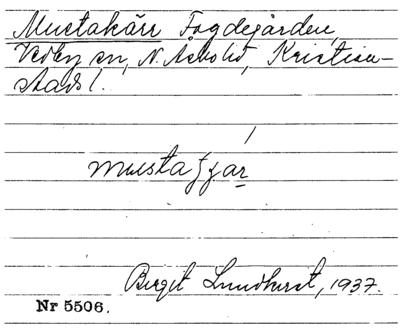 Mustakärr Fogdegården,
Vedby sn, N. Åsbo hd, Kristian-
stads l.
mustaʃɟär
Birgit Lundkvist, 1937.
Nr 5506.